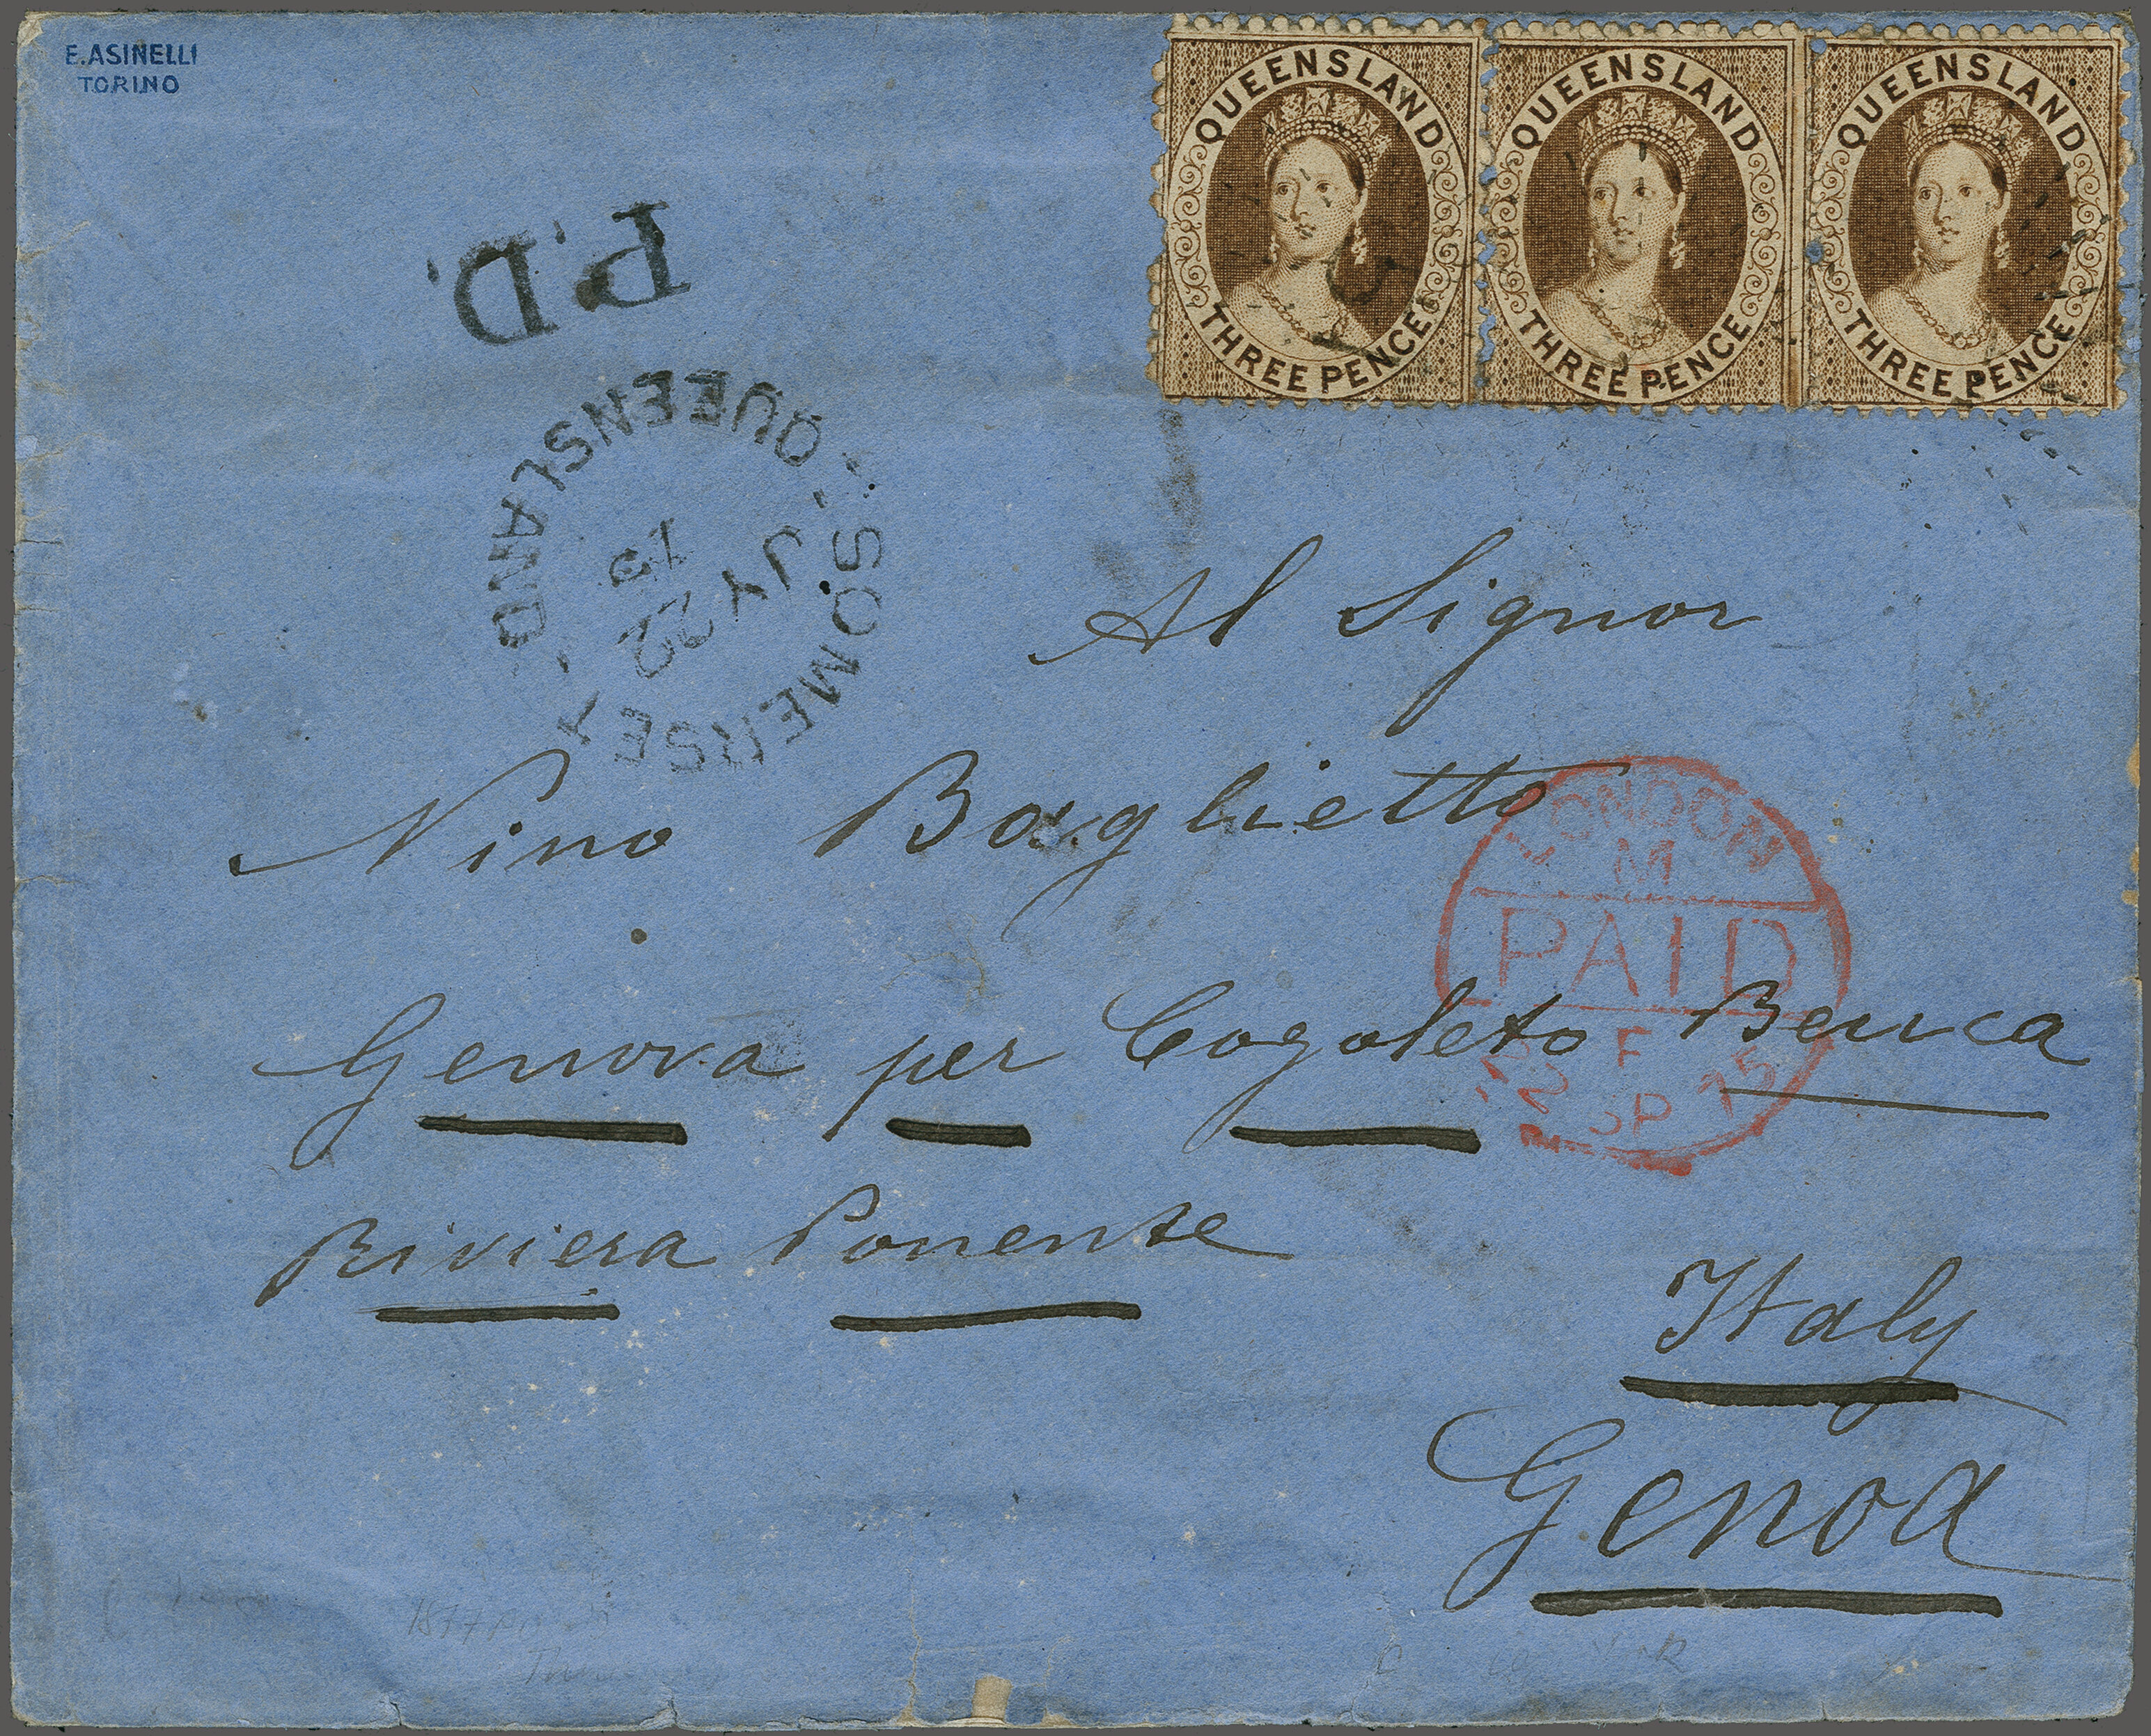 E. ASINELLI
TORINO
QUEENSLAND
THREE PENCE
QUEENSLAND
THREE PENCE
QUEENSLAND
THREE PENCE
P.D.
SOMERSET
QUEENSLAND
JY 22
LONDON
M
PAID
F
12 SP 75
Al Signor
Nino Baglietto
Genova per Cogoleto
Riviera Ponente
Italy
Genoa